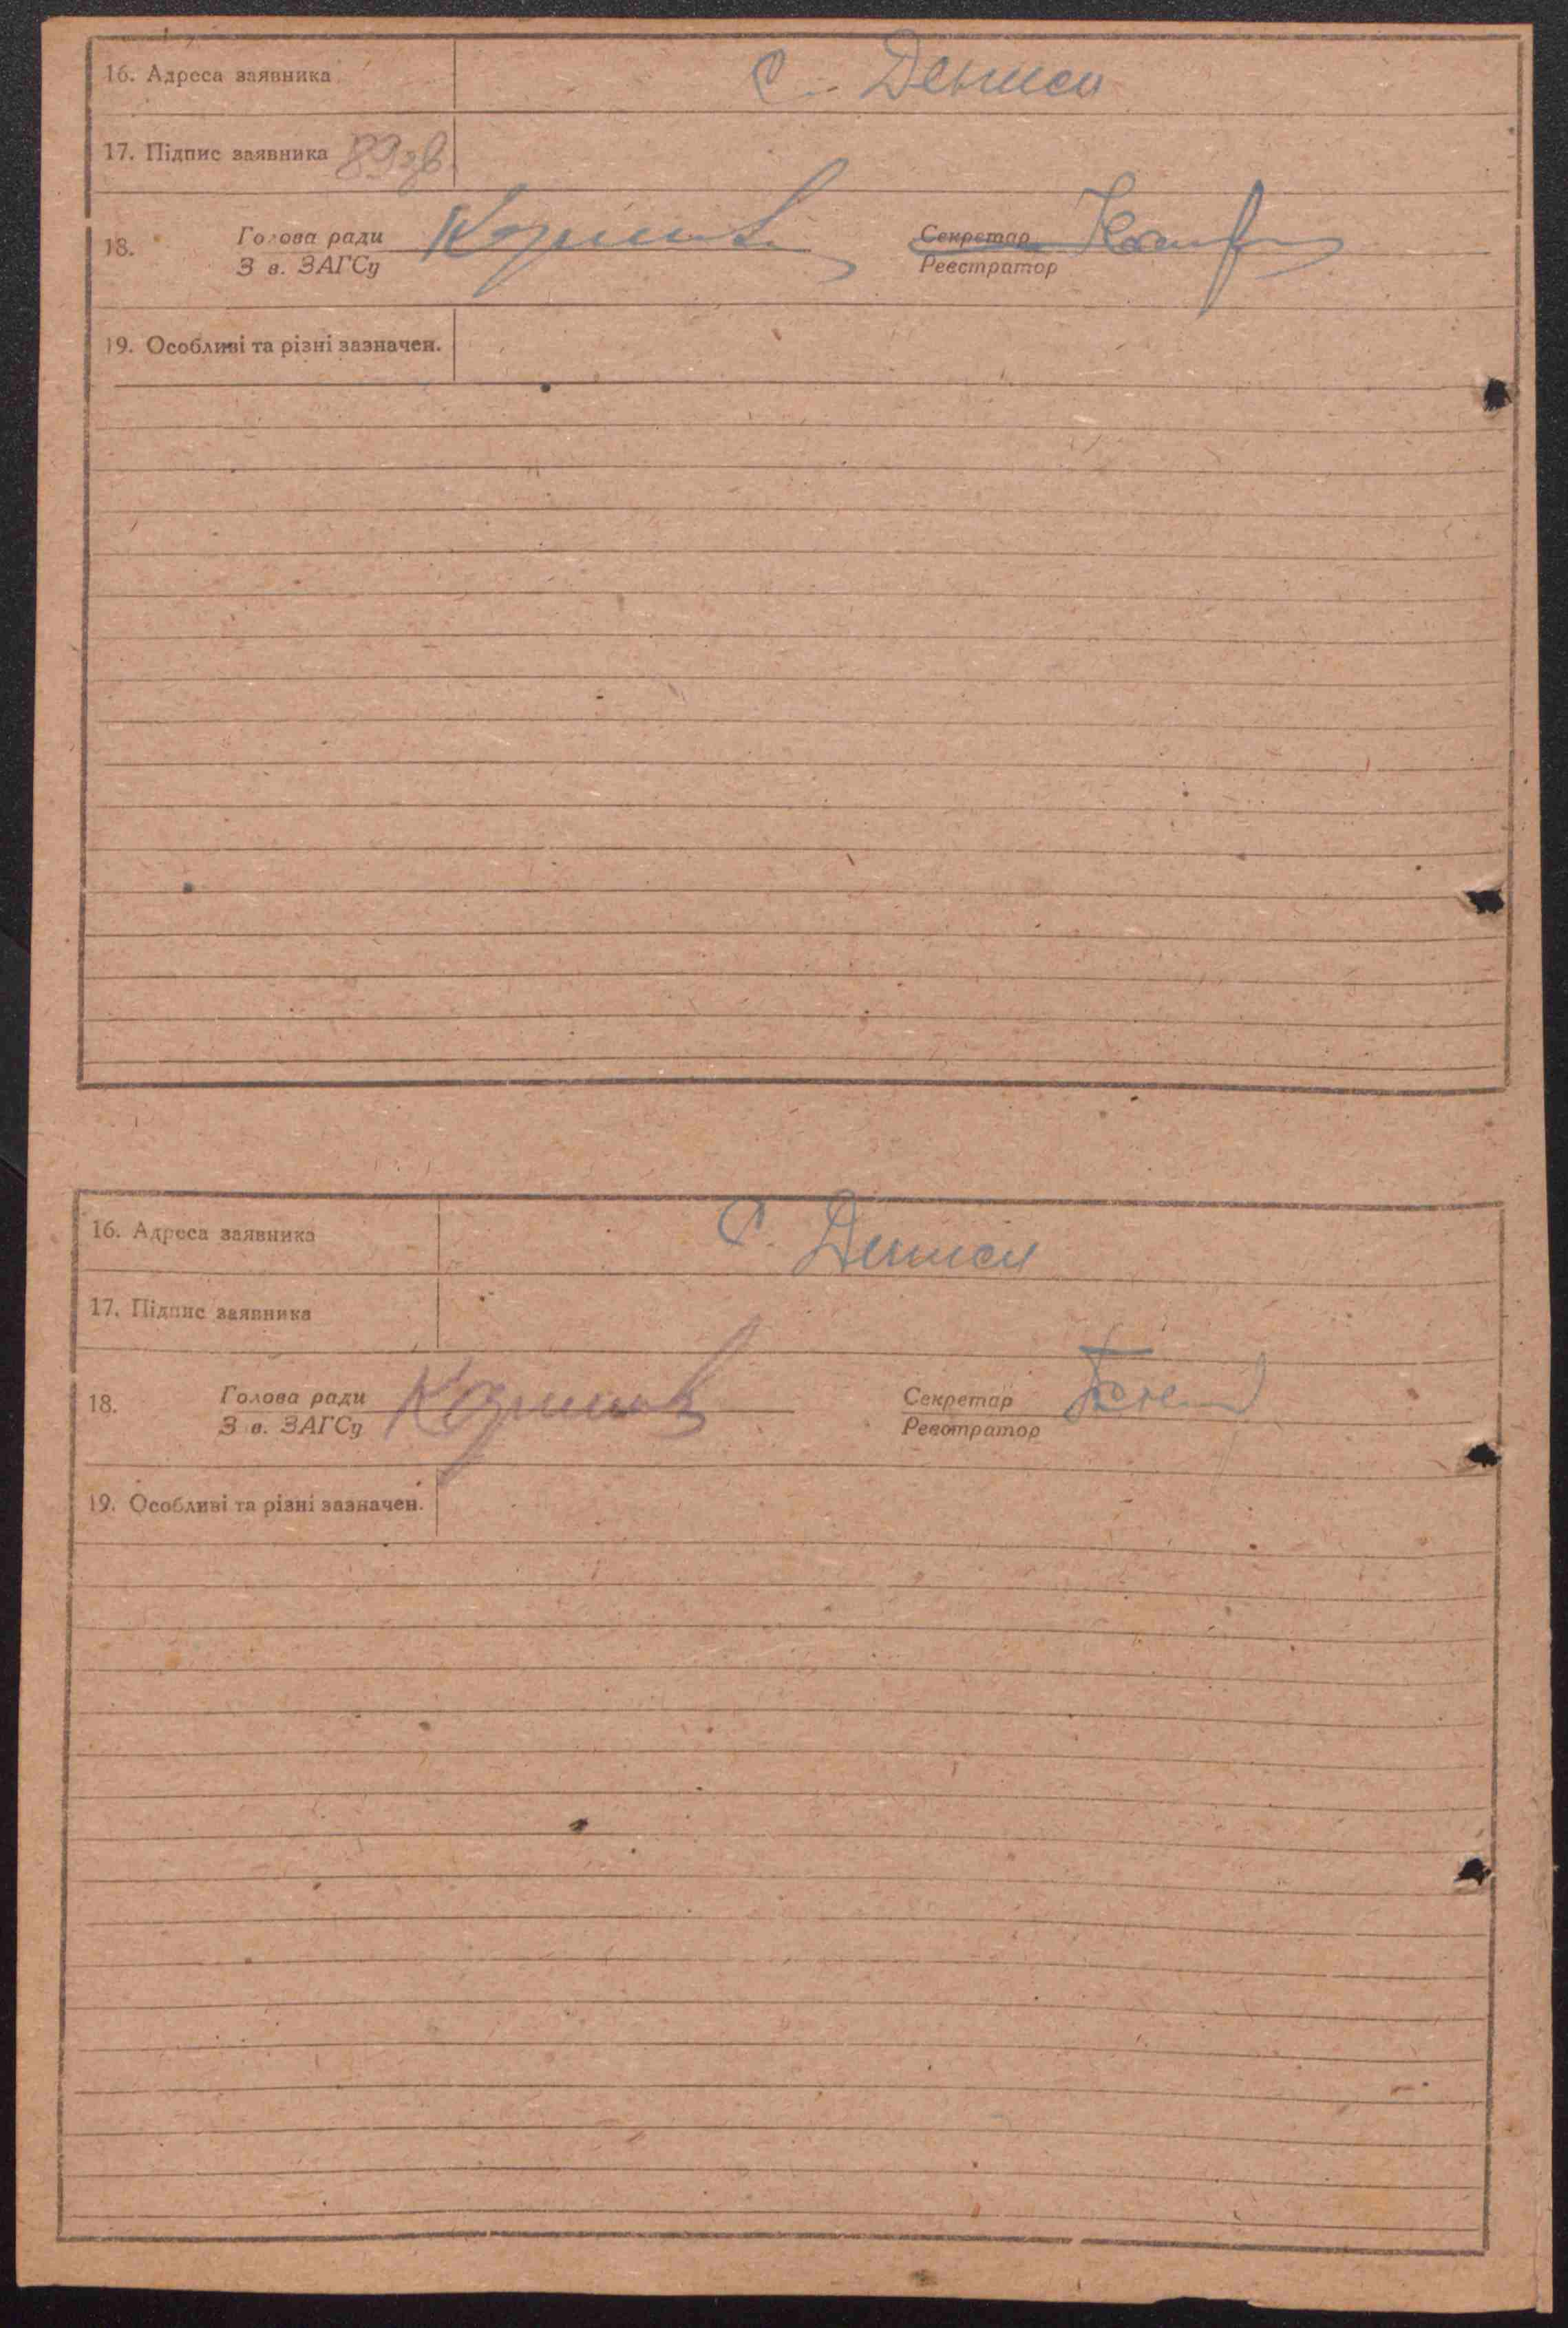 16. Адреса заявника с. Дениси
17. Підпис заявника 89зв
18. Голова ради Секретар
Зав. ЗАГСу Реєстратор
19. Особливі та різні зазначен.
16. Адреса заявника с. Дениси
17. Підпис заявника
18. Голова ради Секретар
Зав. ЗАГСу Реєстратор
19. Особливі та різні зазначен.